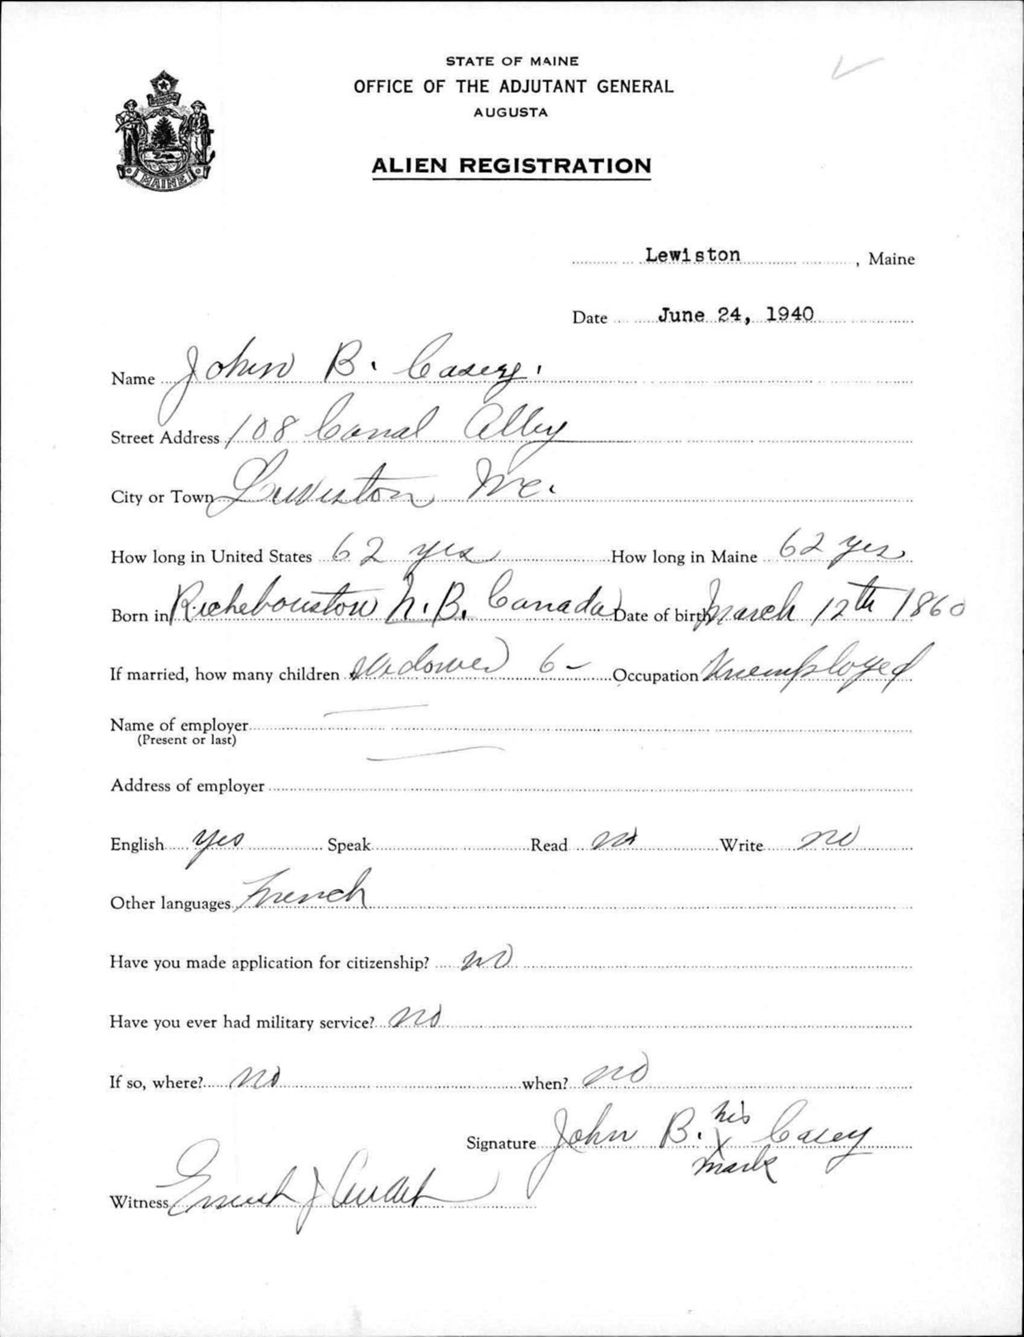 STATE OF MAINE
OFFICE OF THE ADJUTANT GENERAL
AUGUSTA
ALIEN REGISTRATION
MAINE
Lewiston, Maine
Date June 24, 1940
Name John B. Casey.
Street Address 108 Canal Alley
City or Town Lewiston Me.
How long in United States 62 yrs How long in Maine 62 yrs
Born in Richebouston N.B. Canada Date of birth March 12th 1860
If married, how many children Widower 6 - Occupation Unemployed
Name of employer —
(Present or last)
Address of employer —
English yes Speak Read no Write no
Other languages French
Have you made application for citizenship? no
Have you ever had military service? no
If so, where? no when? no
his
Signature John B. X Casey
mark
Witness Ernest J Audet